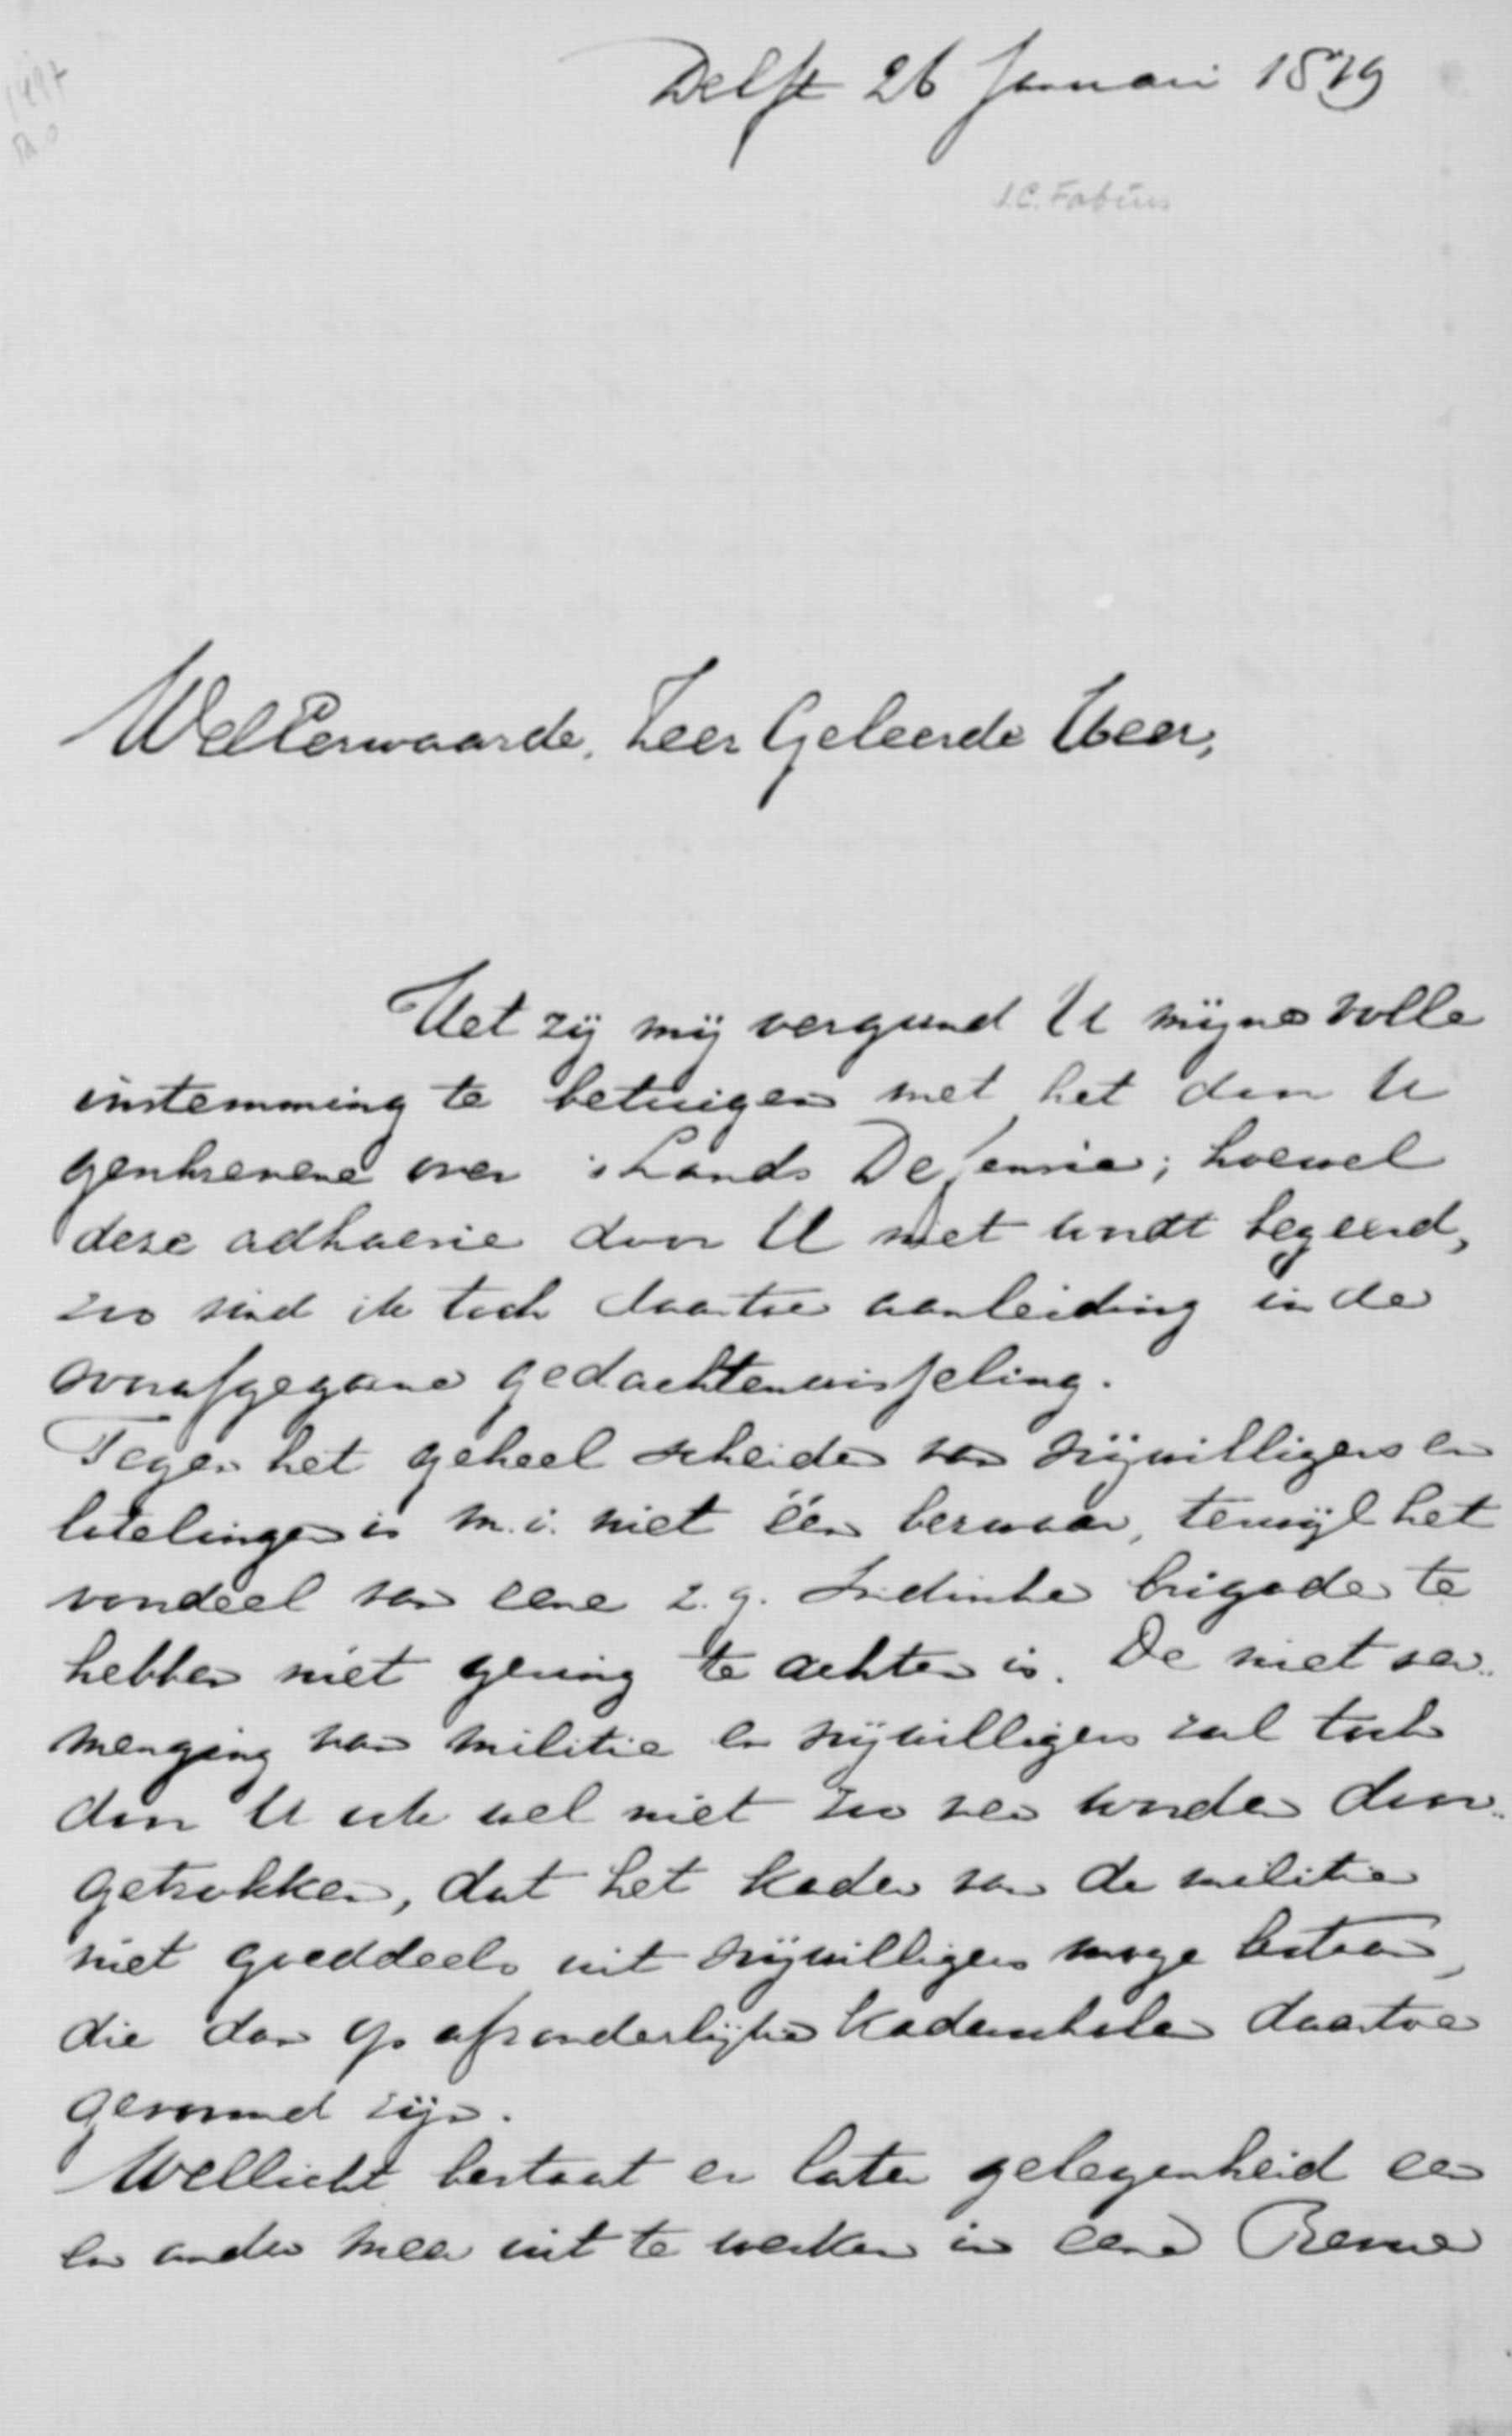 Delft 26 Januari 1879
J.C. Fabius
WelEerwaarde, Zeer Geleerde Heer,
Het zij mij vergund U mijne volle
instemming te betuigen met het door U
geschrevene over 's Lands Defensie; hoewel
deze adhaesie door U niet wordt begeerd,
zoo vind ik toch daartoe aanleiding in de
voorafgegane gedachtenwisseling.
Tegen het geheel scheiden van vrijwilligers en
lotelingen is m.i. niet één bezwaar, terwijl het
voordeel van eene z.g. Indische brigade te
hebben niet gering te achten is. De niet ver-
menging van militie en vrijwilligers zal toch
door U ook wel niet zoo ver worden door-
getrokken, dat het kader van de militie
niet goeddeels uit vrijwilligers moge bestaan,
die dan op afzonderlijke kaderscholen daartoe
gevormd zijn.
Wellicht bestaat er later gelegenheid een
en ander meer uit te werken in eene Revue